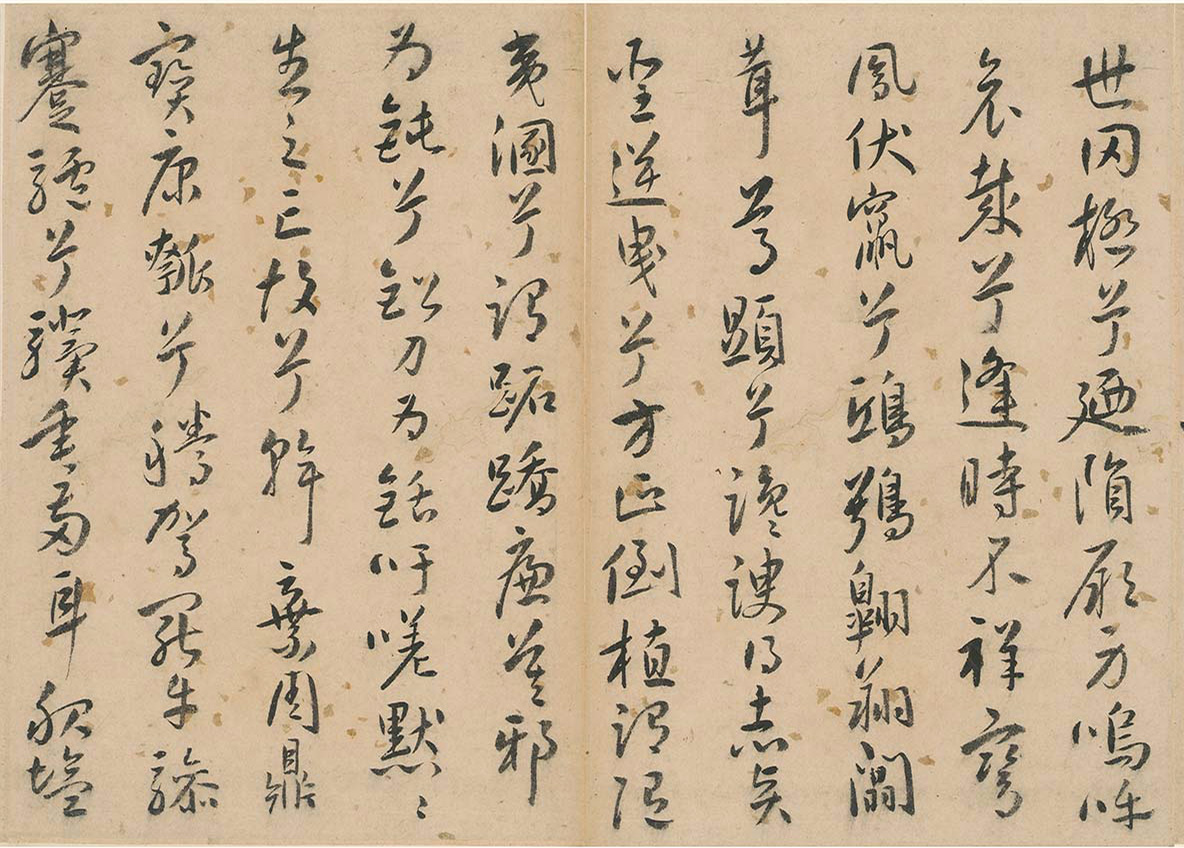 世罔極兮廼隕厥身嗚呼
哀哉兮逢時不祥鸞
鳳伏竄兮鴟鴞翱翔闒
茸尊顯兮讒諛得志賢
聖逆曳兮方正倒植謂隨
夷溷兮謂跖蹻廉莫邪
為鈍兮鉛刀為銛吁嗟默〻
生之亡故兮斡棄周鼎
寶康瓠兮騰駕罷牛驂
蹇驢兮驥垂兩耳服鹽